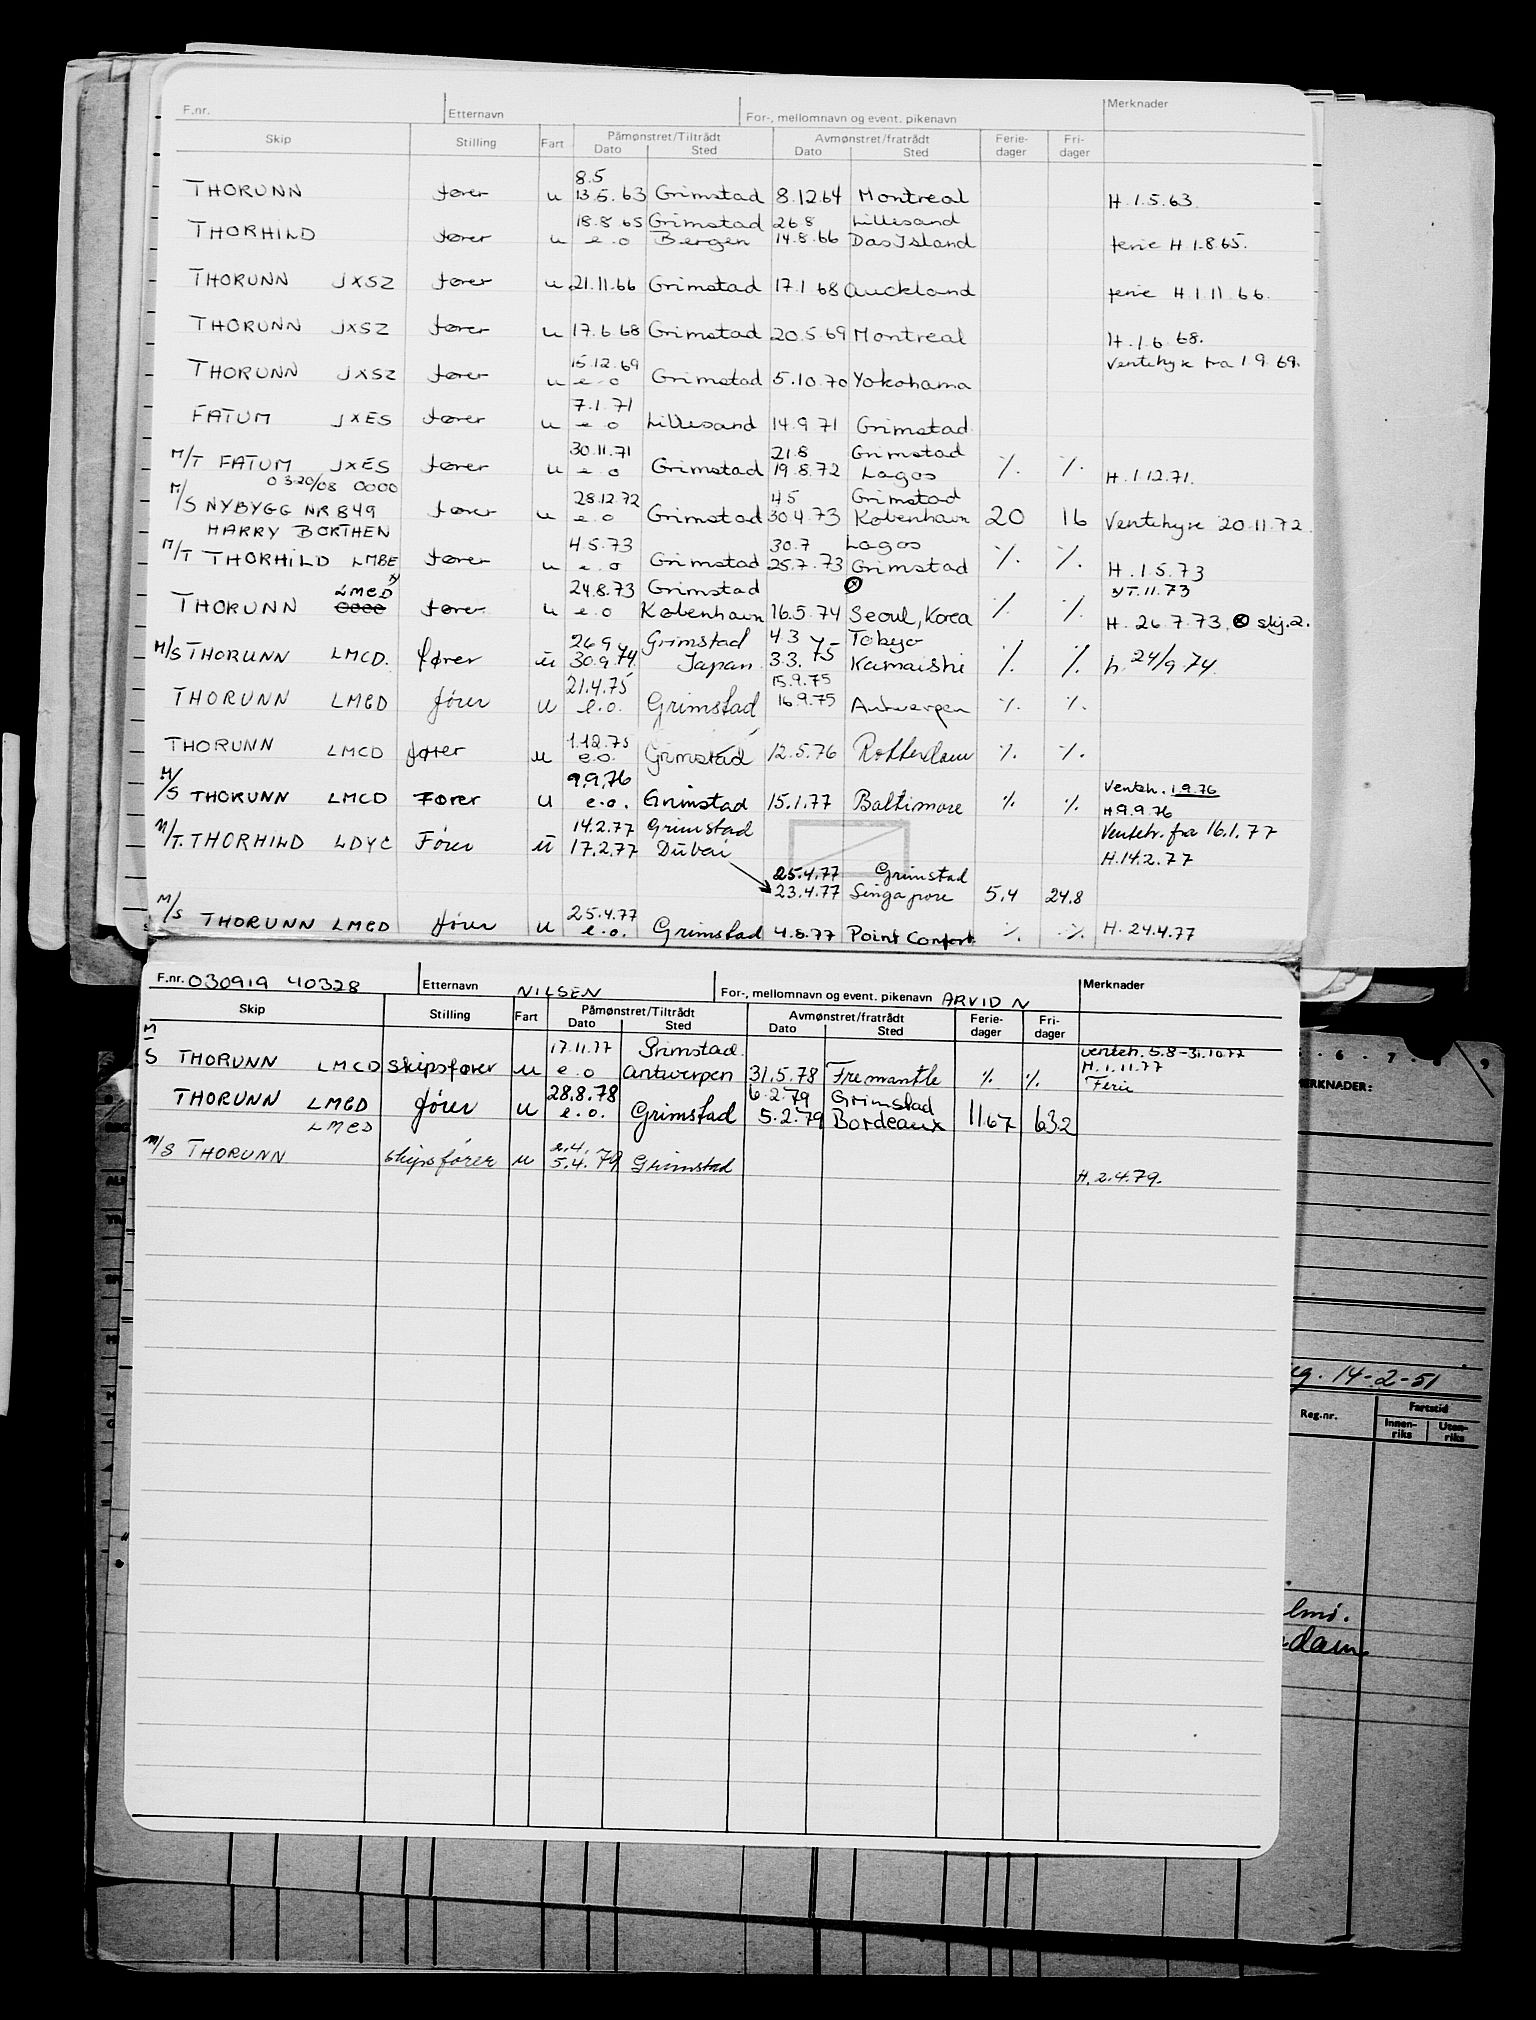 F.nr. Etternavn For-, mellomnavn og event. pikenavn Merknader
Skip Stilling Fart Påmønstret/Tiltrådt Avmønstret/fratrådt Ferie- Fri-
Dato Sted Dato Sted dager dager
8.5
THORUNN fører u 13.5.63 Grimstad 8.12.64 Montreal H.1.5.63
18.8.65 Grimstad 26.8 Lillesand
THORHILD fører u e.o Bergen 14.8.66 Das Island ferie H.1.8.65.
THORUNN JXSZ fører u 21.11.66 Grimstad 17.1 68 Auckland ferie H.1.11.66.
THORUNN JXSZ fører u 17.6 68 Grimstad 20.5.69 Montreal H.1.6.68.
15.12.69 Ventehyre fra 1.9.69.
THORUNN JXSZ fører u e.o Grimstad 5.10.70 Yokohama
7.1.71
FATUM JXES fører u e.o Lillesand 14.9.71 Grimstad
30.11.71 21.8 Grimstad
M/T FATUM JXES fører u e.o Grimstad 19.8.72 Lagos ./. ./. H.1.12.71.
0320/08 0000
28.12.72 4.5 Grimstad
M/S NYBYGG NR 849 fører u e.o Grimstad 30.4.73 København 20 16 Ventehyre 20.11.72.
HARRY BORTHEN
4.5.73 30.7 Lagos
M/T THORHILD LMBE fører u e.o Grimstad 25.7.73 Grimstad ./. ./. H.1.5.73
LMCD 24.8.73 Grimstad ⊗ YT.11.73
THORUNN fører u e.o København 16.5.74 Seoul, Korea ./. ./. H.26.7.73. ⊗ skj.2.
26.9 Grimstad 4.3 Tokyo
M/S THORUNN LMCD. fører u 30.9.74 Japan 3.3.75 Kamaishi ./. ./. h. 24/9.74.
21.4.75 15.9.75
THORUNN LMCD fører u e.o. Grimstad 16.9.75 Antwerpen ./. ./.
1.12.75
THORUNN LMCD fører u e.o. Grimstad 12.5.76 Rotterdam ./. ./.
9.9.76 Venteh. 1.9.76
M/S THORUNN LMCD Fører u e.o. Grimstad 15.1.77 Baltimore ./. ./. H9.9.76
14.2.77 Grimstad Venteh. fra 16.1.77
M/T. THORHILD LDYC Fører u 17.2.77 Dubai H.14.2.77
25.4.77 Grimstad
23.4.77 Singapore 5,4 24,8
25.4.77
M/S THORUNN LMCD fører u e.o. Grimstad 4.8.77 Point Confort ./. ./. H. 24.4.77
F.nr. 030919 40328 Etternavn NILSEN For-, mellomnavn og event. pikenavn ARVID N Merknader
Skip Stilling Fart Påmønstret/Tiltrådt Avmønstret/fratrådt Ferie- Fri-
Dato Sted Dato Sted dager dager
17.11.77 Grimstad. venteh. 5.8-31.10.77
M/S THORUNN LMCD Skipsfører u e.o Antwerpen 31.5.78 Fremantle ./. ./. H.1.11.77
28.8.78 6.2.79 Grimstad Ferie
THORUNN LMCD fører u e.o. Grimstad 5.2.79 Bordeaux 11,67 63,2
LMCD
M/S THORUNN skipsfører u 5.4.79 Grimstad
H. 2.4.79.
5 . 6 . 7 . 8 . 9
MERKNADER:
14-2-51
Reg.nr. Fartstid
Innen-riks Uten-riks